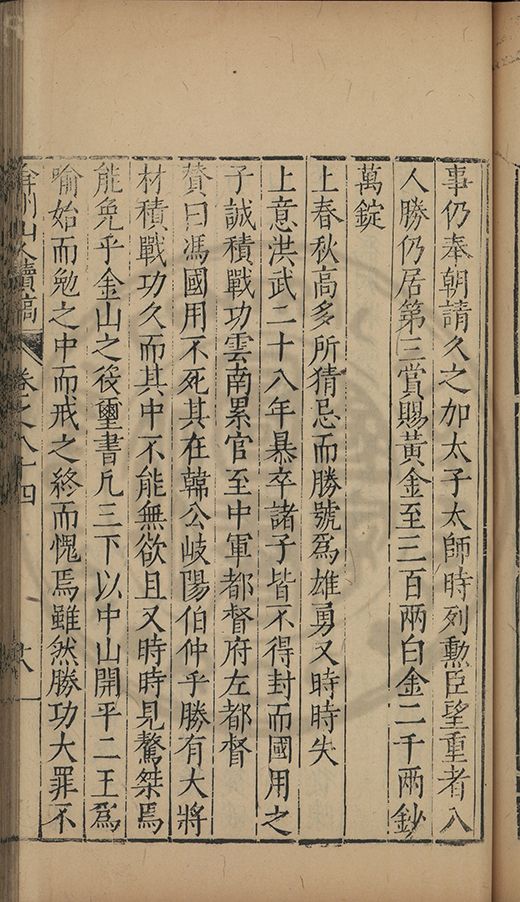 事仍奉朝請久之加太子太師時列勲臣望重者八
人勝仍居第三賞賜黃金至三百兩白金二千兩鈔
萬錠
上春秋高多所猜忌而勝號爲雄勇又時時失
上意洪武二十八年暴卒諸子皆不得封而國用之
子誠積戰功雲南累官至中軍都督府左都督
贊曰馮國用不死其在韓公岐陽伯仲乎勝有大將
材積戰功久而其中不能無欲且又時時見驁桀焉
能免乎金山之役璽書凡三下以中山開平二王爲
喻始而勉之中而戒之終而愧焉雖然勝功大罪不
弇州山人續稿 卷之八十四